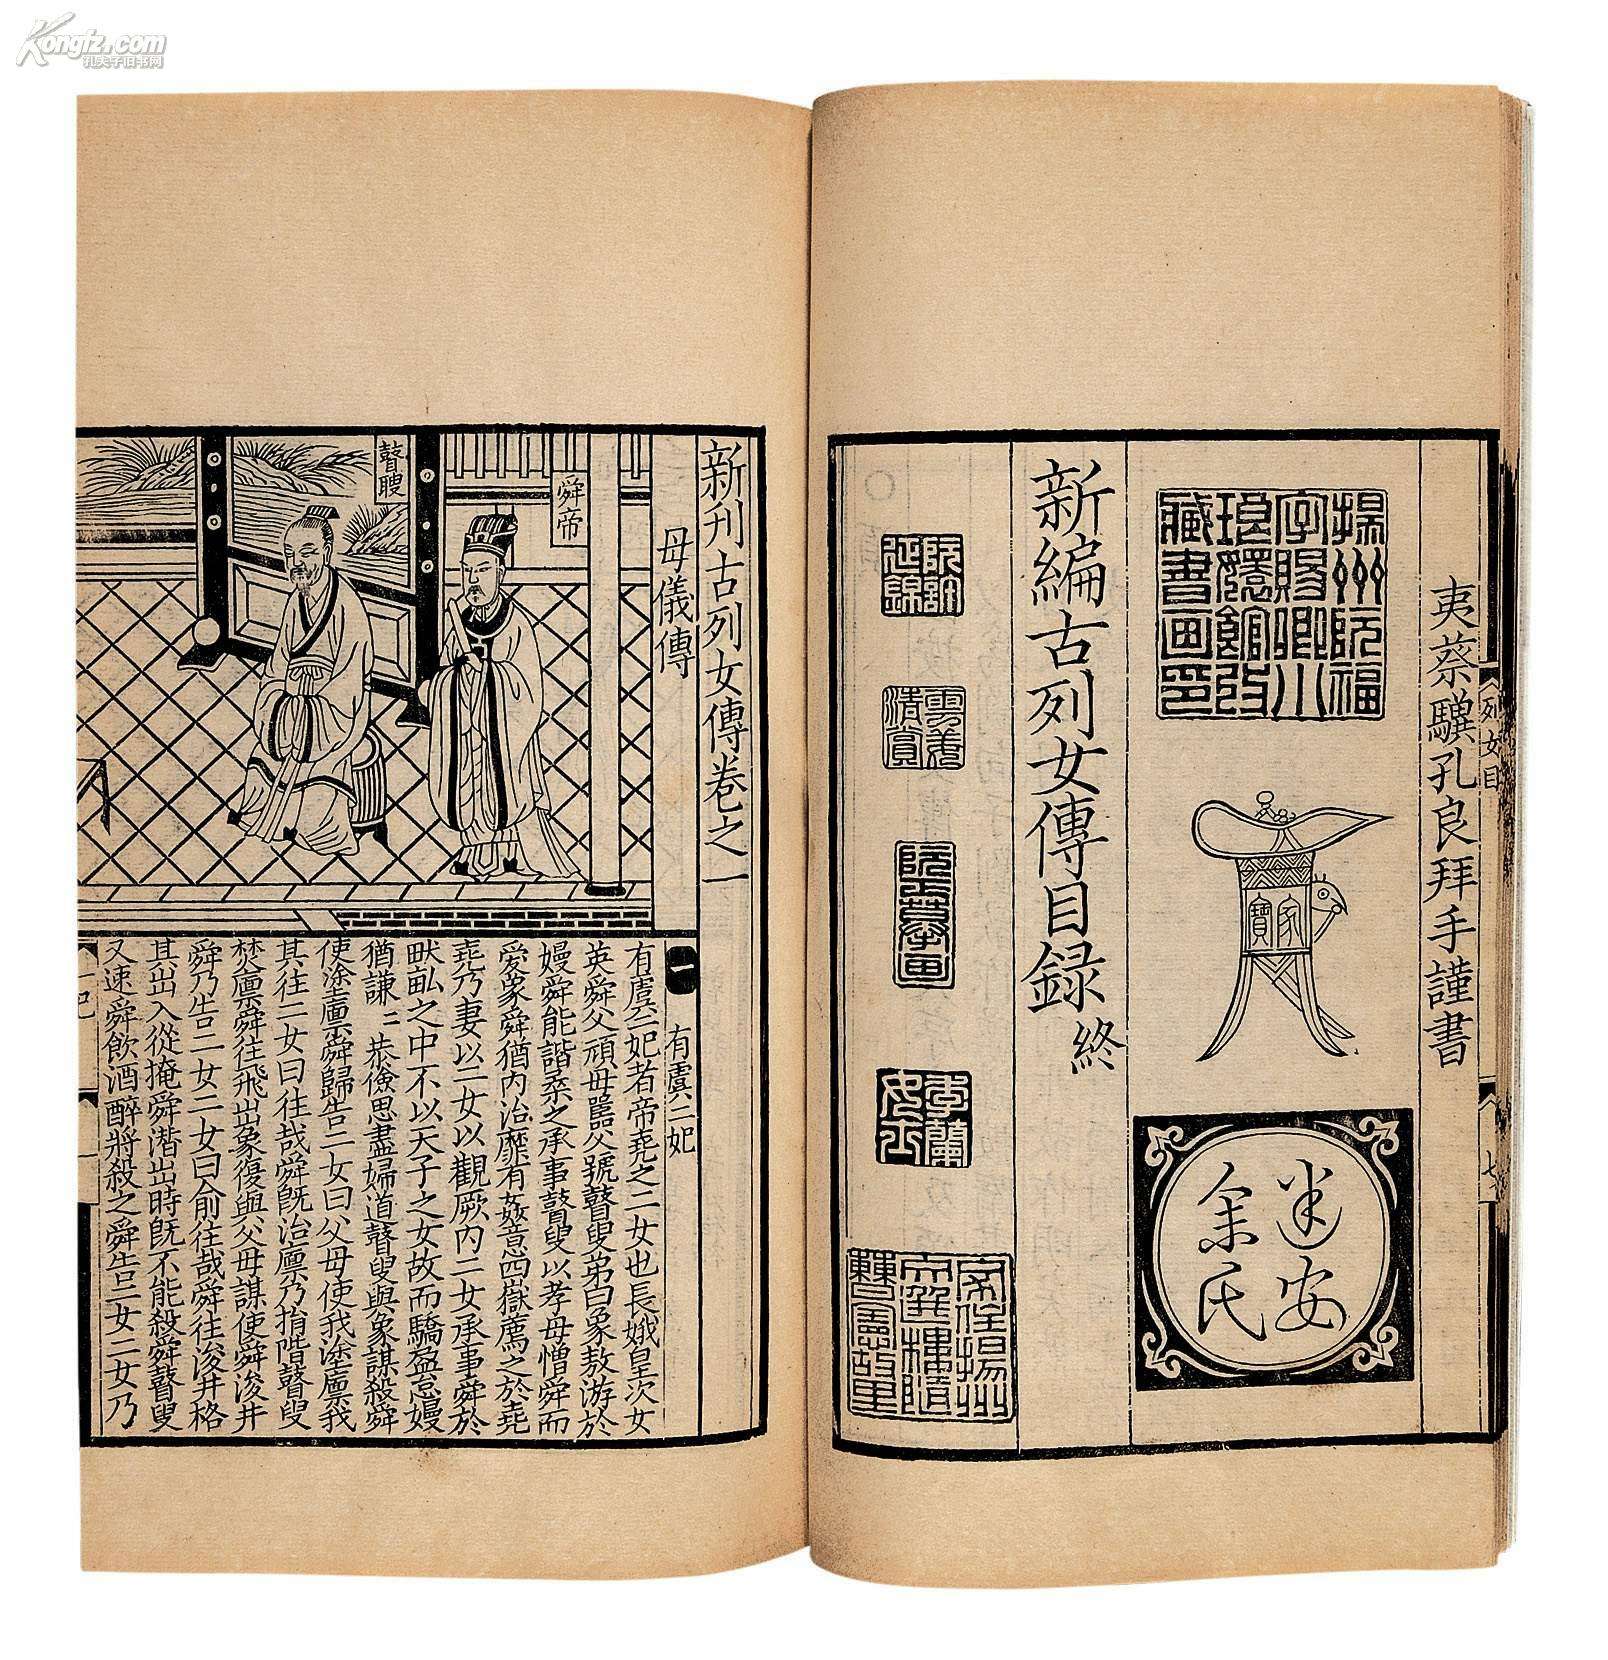 Kongfz.com
孔夫子旧书网
夷蔡驥孔良拜手謹書
列女目
揚州阮福
字賜卿小
琅嬛館收
藏書画印
家寶
迷安
余氏
新編古列女傳目錄終
清賞
李蘭
新刊古列女傳卷之一
母儀傳
舜帝
瞽瞍
一
有虞二妃
有虞二妃者帝堯之二女也長娥皇次女
英舜父頑母嚚父號瞽叟弟曰象敖游於
嫚舜能諧柔之承事瞽叟以孝母憎舜而
愛象舜猶内治靡有姦意四嶽薦之於堯
堯乃妻以二女以觀厥内二女承事舜於
畎畝之中不以天子之女故而驕盈怠嫚
猶謙二恭儉思盡婦道瞽叟與象謀殺舜
使塗廩舜歸告二女曰父母使我塗廩我
其往二女曰往哉舜既治廩乃捐階瞽叟
焚廩舜往飛出象復與父母謀使舜浚井
舜乃告二女二女曰俞往哉舜往浚井格
其出入從掩舜潛出時既不能殺舜瞽叟
又速舜飲酒醉將殺之舜告二女二女乃